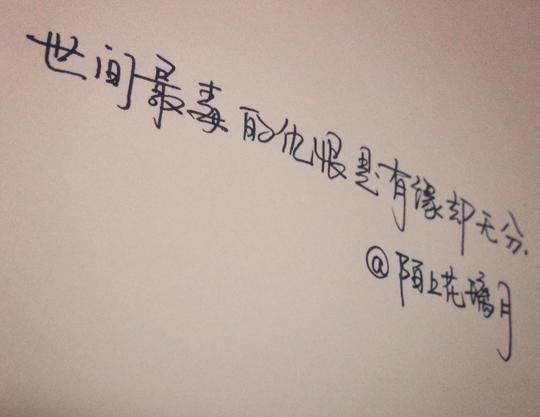 世间最毒的仇恨是有缘却无分.
@陌上花璃月